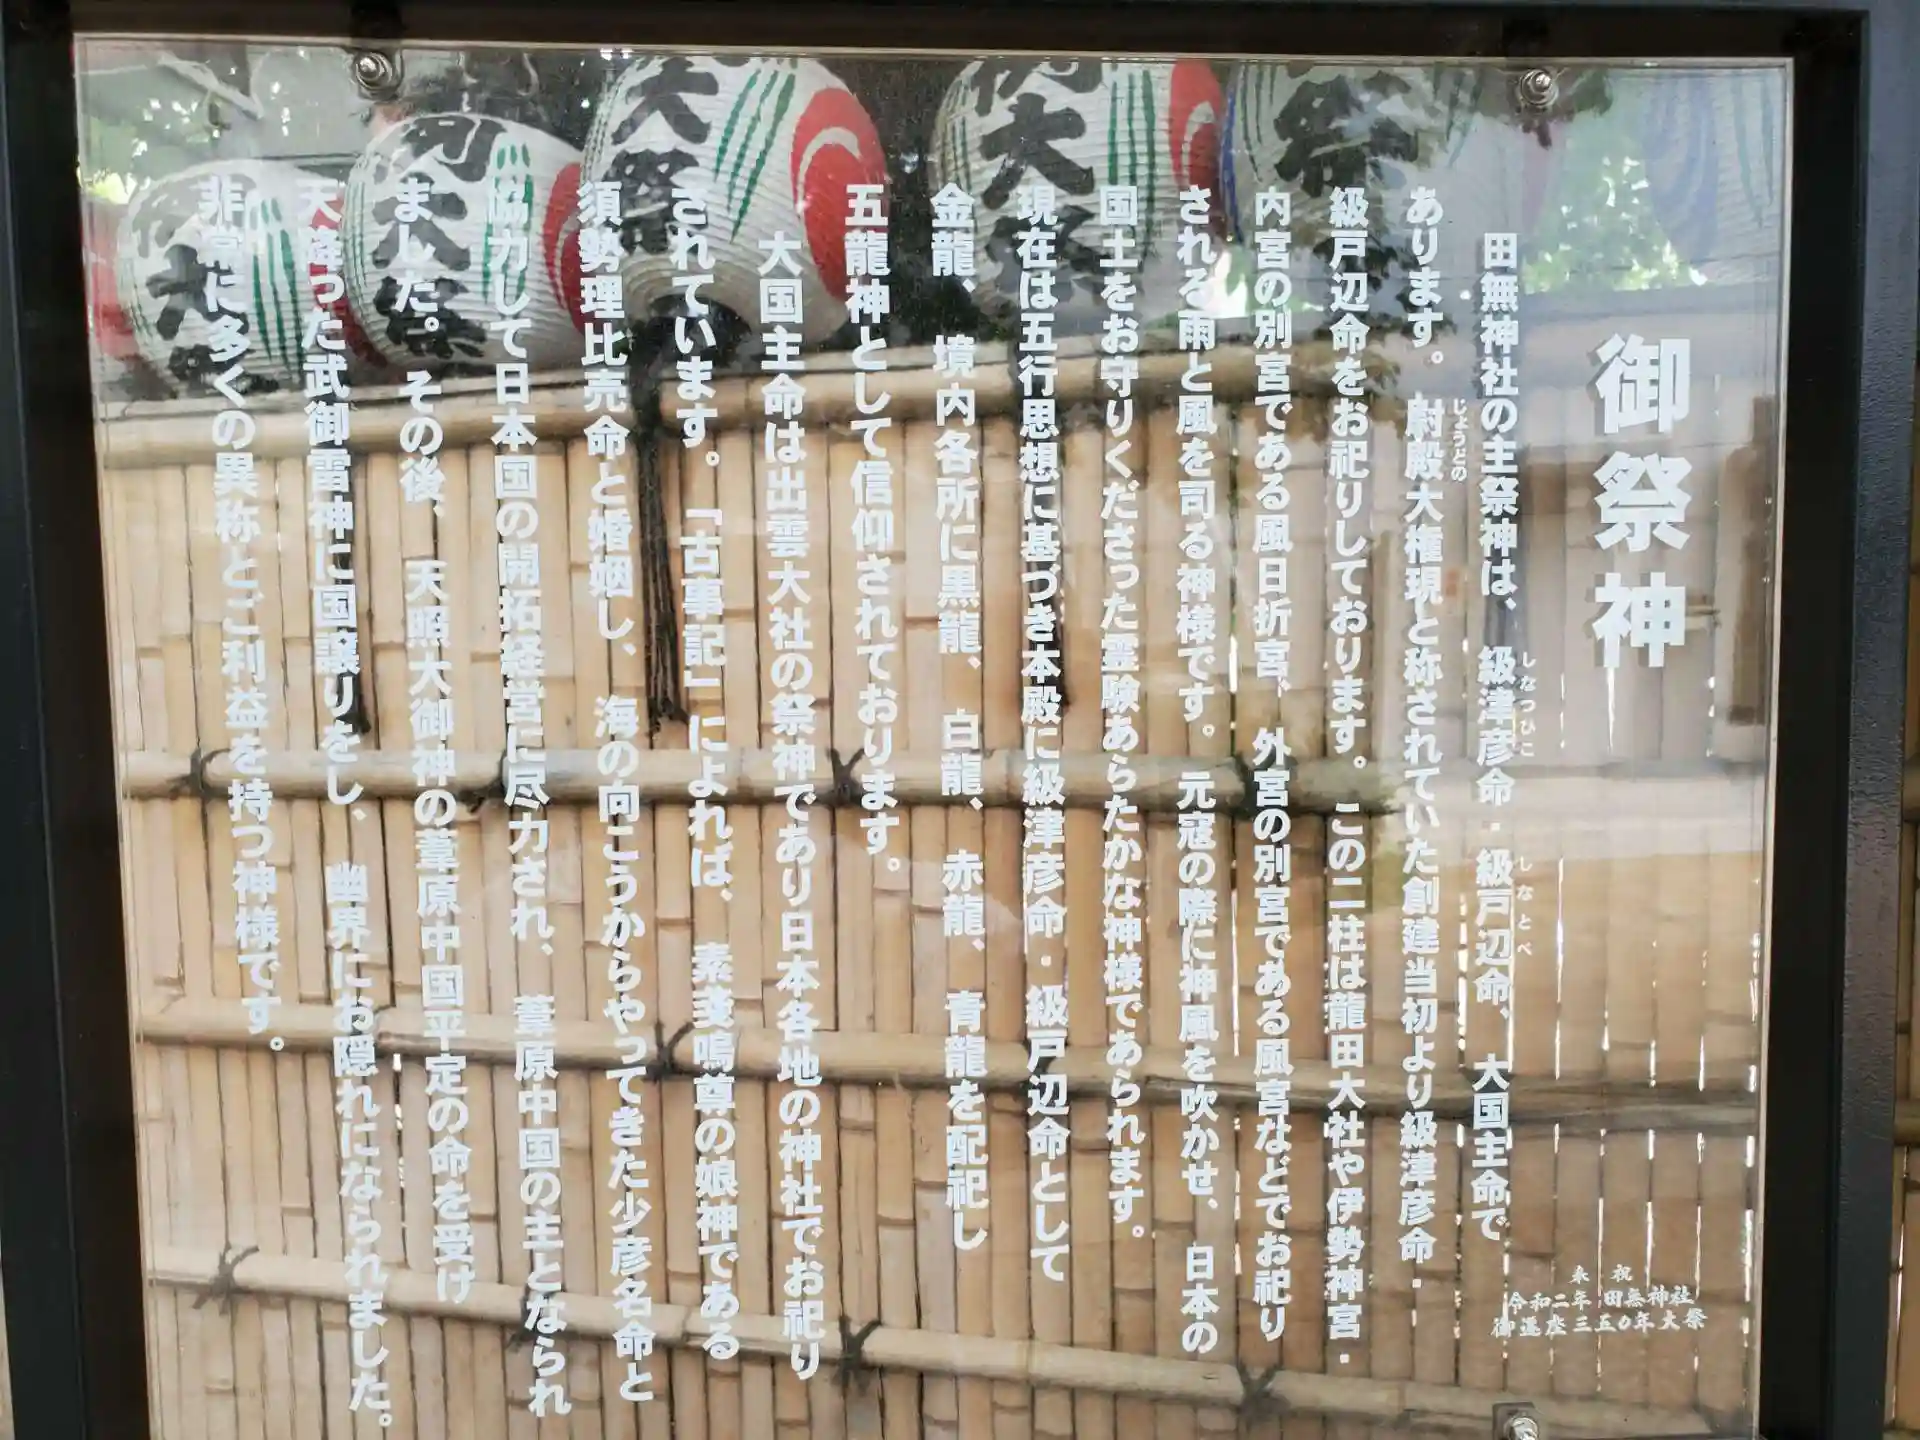 御祭神
奉祝
令和二年 田無神社
御遷座三五〇年大祭
田無神社の主祭神は、級津彦命・級戸辺命、大国主命で
しなつひこ
しなとべ
あります。尉殿大権現と称されていた創建当初より級津彦命・
じょうどの
級戸辺命をお祀りしております。この二柱は龍田大社や伊勢神宮・
内宮の別宮である風日折宮、外宮の別宮である風宮などでお祀り
される雨と風を司る神様です。元寇の際に神風を吹かせ、日本の
国土をお守りくださった霊験あらたかな神様であられます。
現在は五行思想に基づき本殿に級津彦命・級戸辺命として
金龍、境内各所に黒龍、白龍、赤龍、青龍を配祀し
五龍神として信仰されております。
大国主命は出雲大社の祭神であり日本各地の神社でお祀り
されています。「古事記」によれば、素戔嗚尊の娘神である
須勢理比売命と婚姻し、海の向こうからやってきた少彦名命と
協力して日本国の開拓経営に尽力され、葦原中国の主となられ
ました。その後、天照大御神の葦原中国平定の命を受け
天降った武御雷神に国譲りをし、幽界にお隠れになられました。
非常に多くの異称とご利益を持つ神様です。
大祭
大祭
大祭
祭